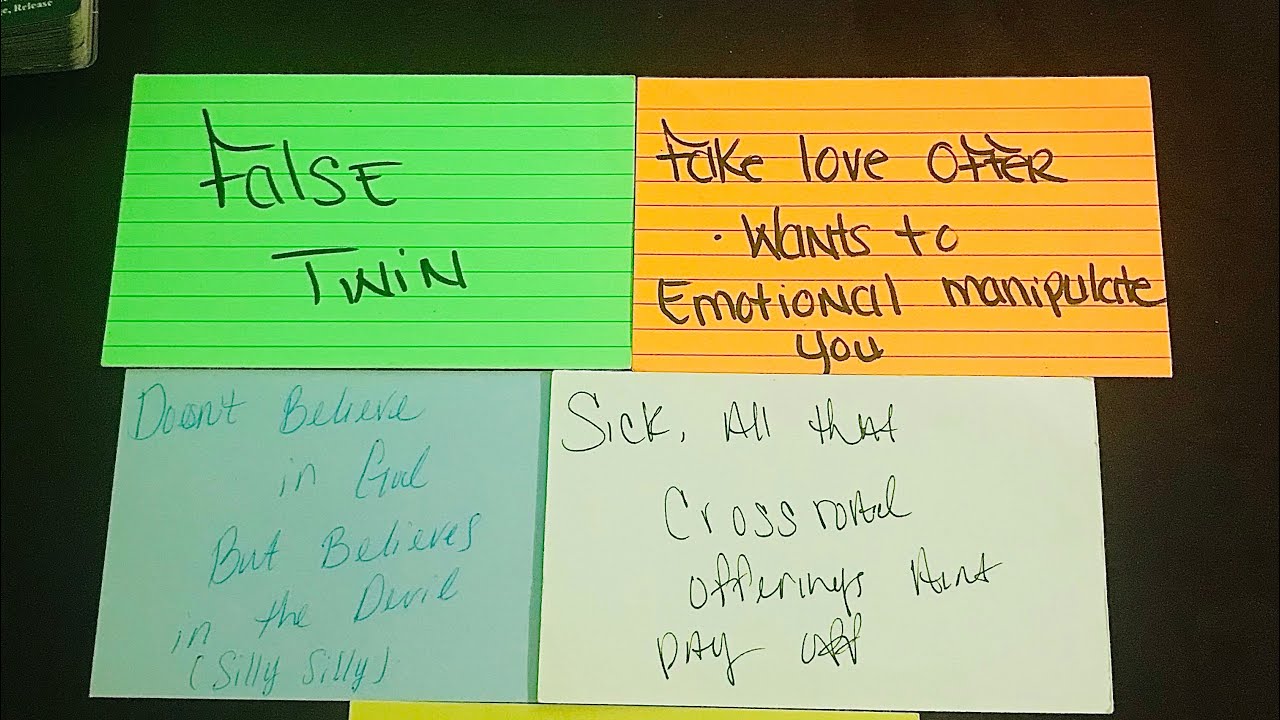 e, Release
False
Twin
Fake love OFFER
. Wants to
Emotional manipulate
you
Doesn't Believe
in God
But Believes
in the Devil
(Silly Silly)
Sick, All that
Crossroad
offerings Aint
pay off